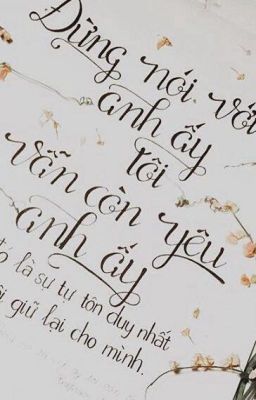 Đừng nói với
anh ấy
tôi
vẫn còn yêu
anh ấy
là sự tự tôn duy nhất
giữ lại cho mình.